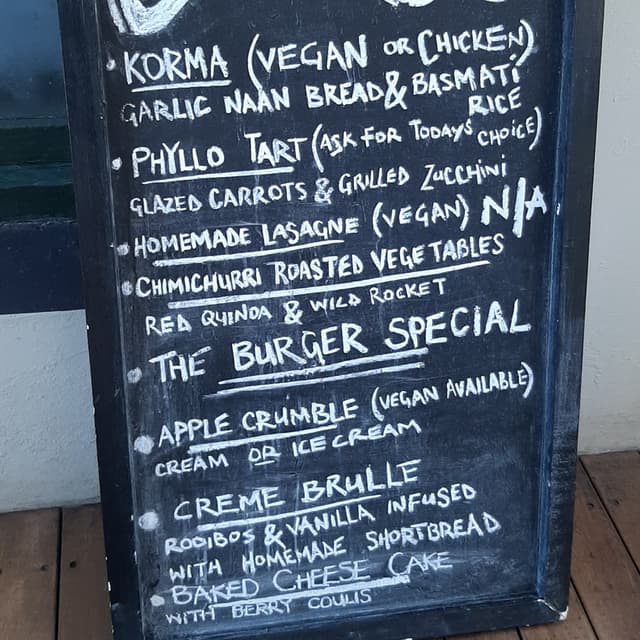 KORMA (VEGAN OR CHICKEN)
GARLIC NAAN BREAD & BASMATI
RICE
PHYLLO TART (ASK FOR TODAYS CHOICE)
GLAZED CARROTS & GRILLED ZUCCHINI
HOMEMADE LASAGNE (VEGAN) N/A
CHIMICHURRI ROASTED VEGETABLES
RED QUINOA & WILD ROCKET
THE BURGER SPECIAL
APPLE CRUMBLE (VEGAN AVAILABLE)
CREAM OR ICE CREAM
CREME BRULLE
ROOIBOS & VANILLA INFUSED
WITH HOMEMADE SHORTBREAD
BAKED CHEESE CAKE
WITH BERRY COULIS